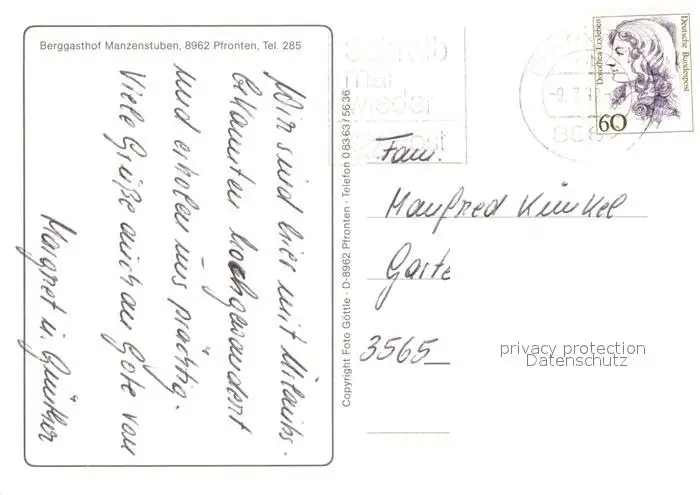 Berggasthof Manzenstuben, 8962 Pfronten, Tel. 285
Wir sind hier mit Urlaubs-
bekannten hochgewandert
und erholen uns prächtig.
Viele Grüße auch an Gote von
Margret u. Günther
Copyright Foto Göttle · D-8962 Pfronten · Telefon 0 83 63 / 56 36
wieder
Dorothea Erxleben
Deutsche Bundespost
60
Fam.
Manfred Künkel
Garte
3565
privacy protection
Datenschutz